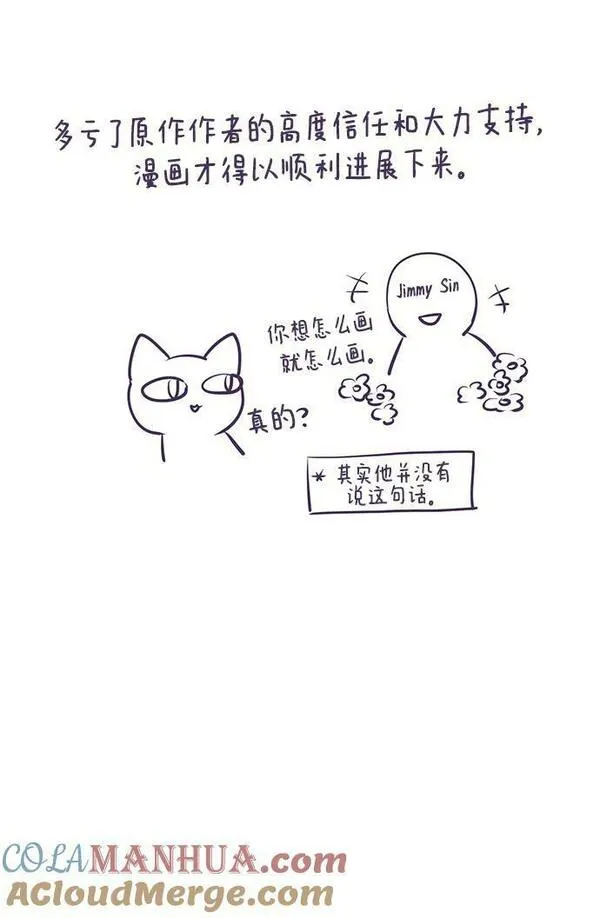 多亏了原作作者的高度信任和大力支持,
漫画才得以顺利进展下来。
Jimmy Sin
你想怎么画
就怎么画。
真的?
* 其实他并没有
说这句话。
COLAMANHUA.com
ACloudMerge.com